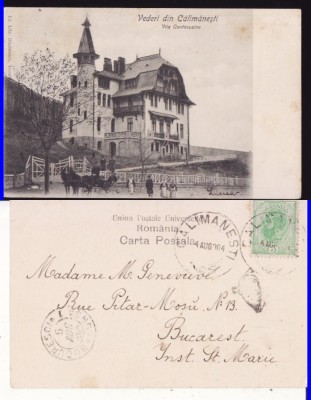 Vederi din Călimănești
Vila Cantacuzino
Uniua Postale Universelle
România
Carta Postala
CALIMANESTI
4 AUG 904
Madame M. Geneviève
Rue Pitar-Mosü N. 13.
Bucarest
Inst. St. Marie
BUCURESCI
5
AUG